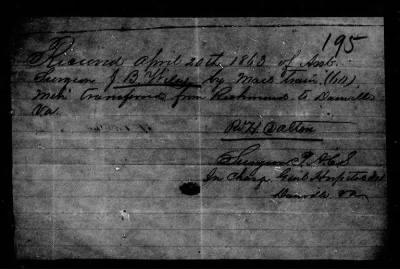 195
Received April 20th 1863 of Asst.
Surgeon J. B. by Mail train (64)
men transferred from Richmond to Danville
Va.
R. H. Dalton
Surgeon P.A.C.S
In Charge Genl Hospital
Danville Va